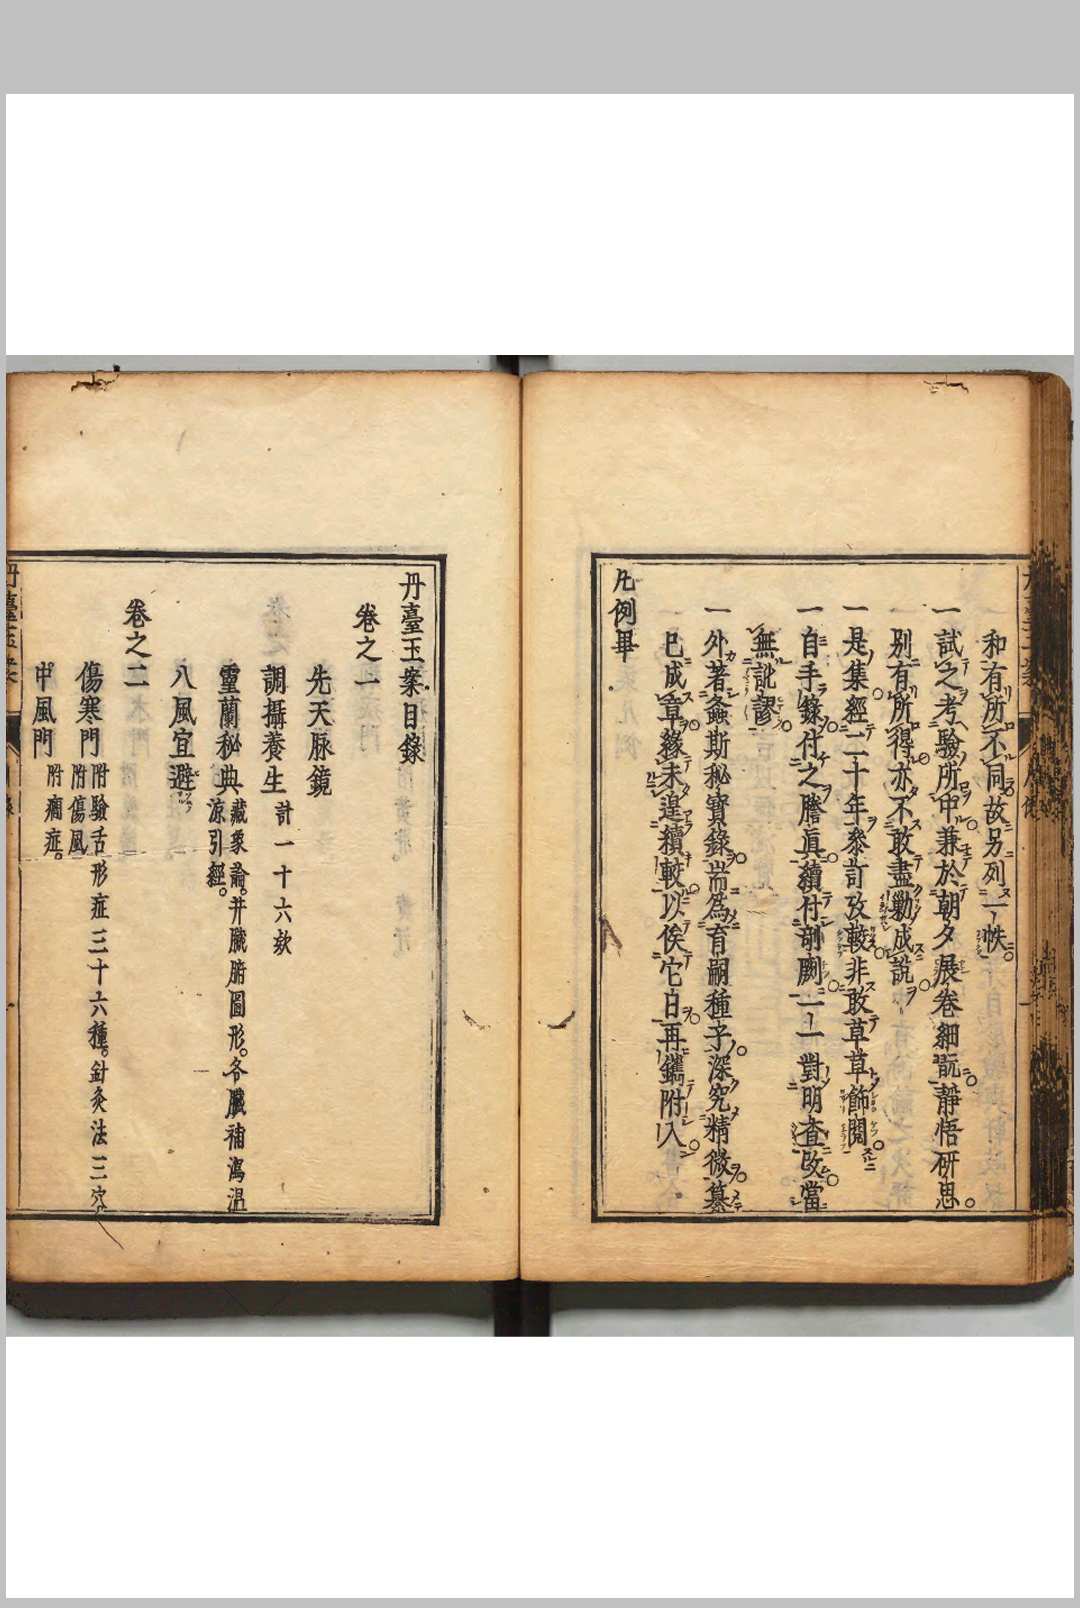 和有所不同故另列一帙
一試之考驗所中兼於朝夕展卷細翫靜悟研思
別有所得亦不敢盡勦成說
一是集經二十年叅訂攷較非敢草草飾閱
一自手錄付之謄眞續付剞劂一一對明査改當
無訛謬
一外著螽斯秘寶錄耑爲育嗣種子深究精微纂
已成章緣未遑續較以俟它日再鐫附入
凡例畢
丹臺玉案目錄
卷之一
先天脉鏡
調攝養生 計一十六欵
靈蘭秘典 藏象論。并臟腑圖形。各臟補瀉溫
涼引經。
八風宜避
卷之二
傷寒門 附驗舌形症三十六種。針灸法二穴。
附傷風
中風門 附癇症。
丹臺玉案